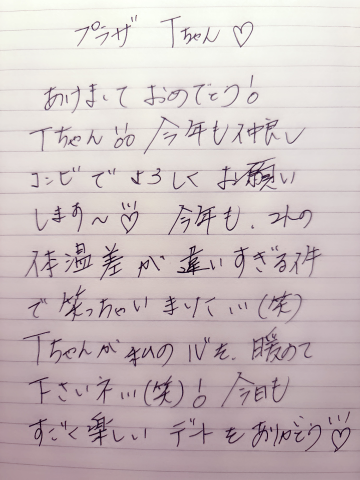 プラザ Tちゃん♡
あけましておめでとう!
Tちゃん!!今年も仲良し
コンビでよろしくお願い
します〜♡ 今年も、2人の
体温差が違いすぎる件
で笑っちゃいまして…(笑)
Tちゃんが私の心を、暖めて
下さいネ…(笑)! 今日も
すごく楽しいデートをありがとう♡